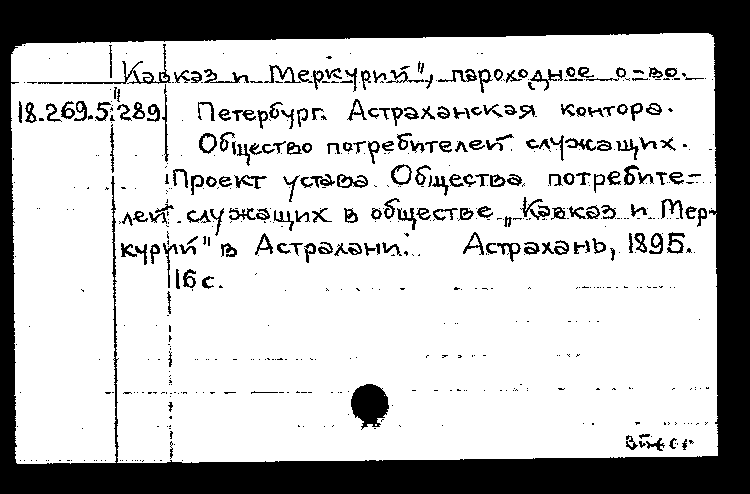 "Кавказ и Меркурий", пароходное о-во.
18.269.5.289. Петербург. Астраханская контора.
Общество потребителей служащих.
Проект устава Общества потребите-
лей служащих в обществе „Кавказ и Мер-
курий" в Астрахани. Астрахань, 1895.
16 с.